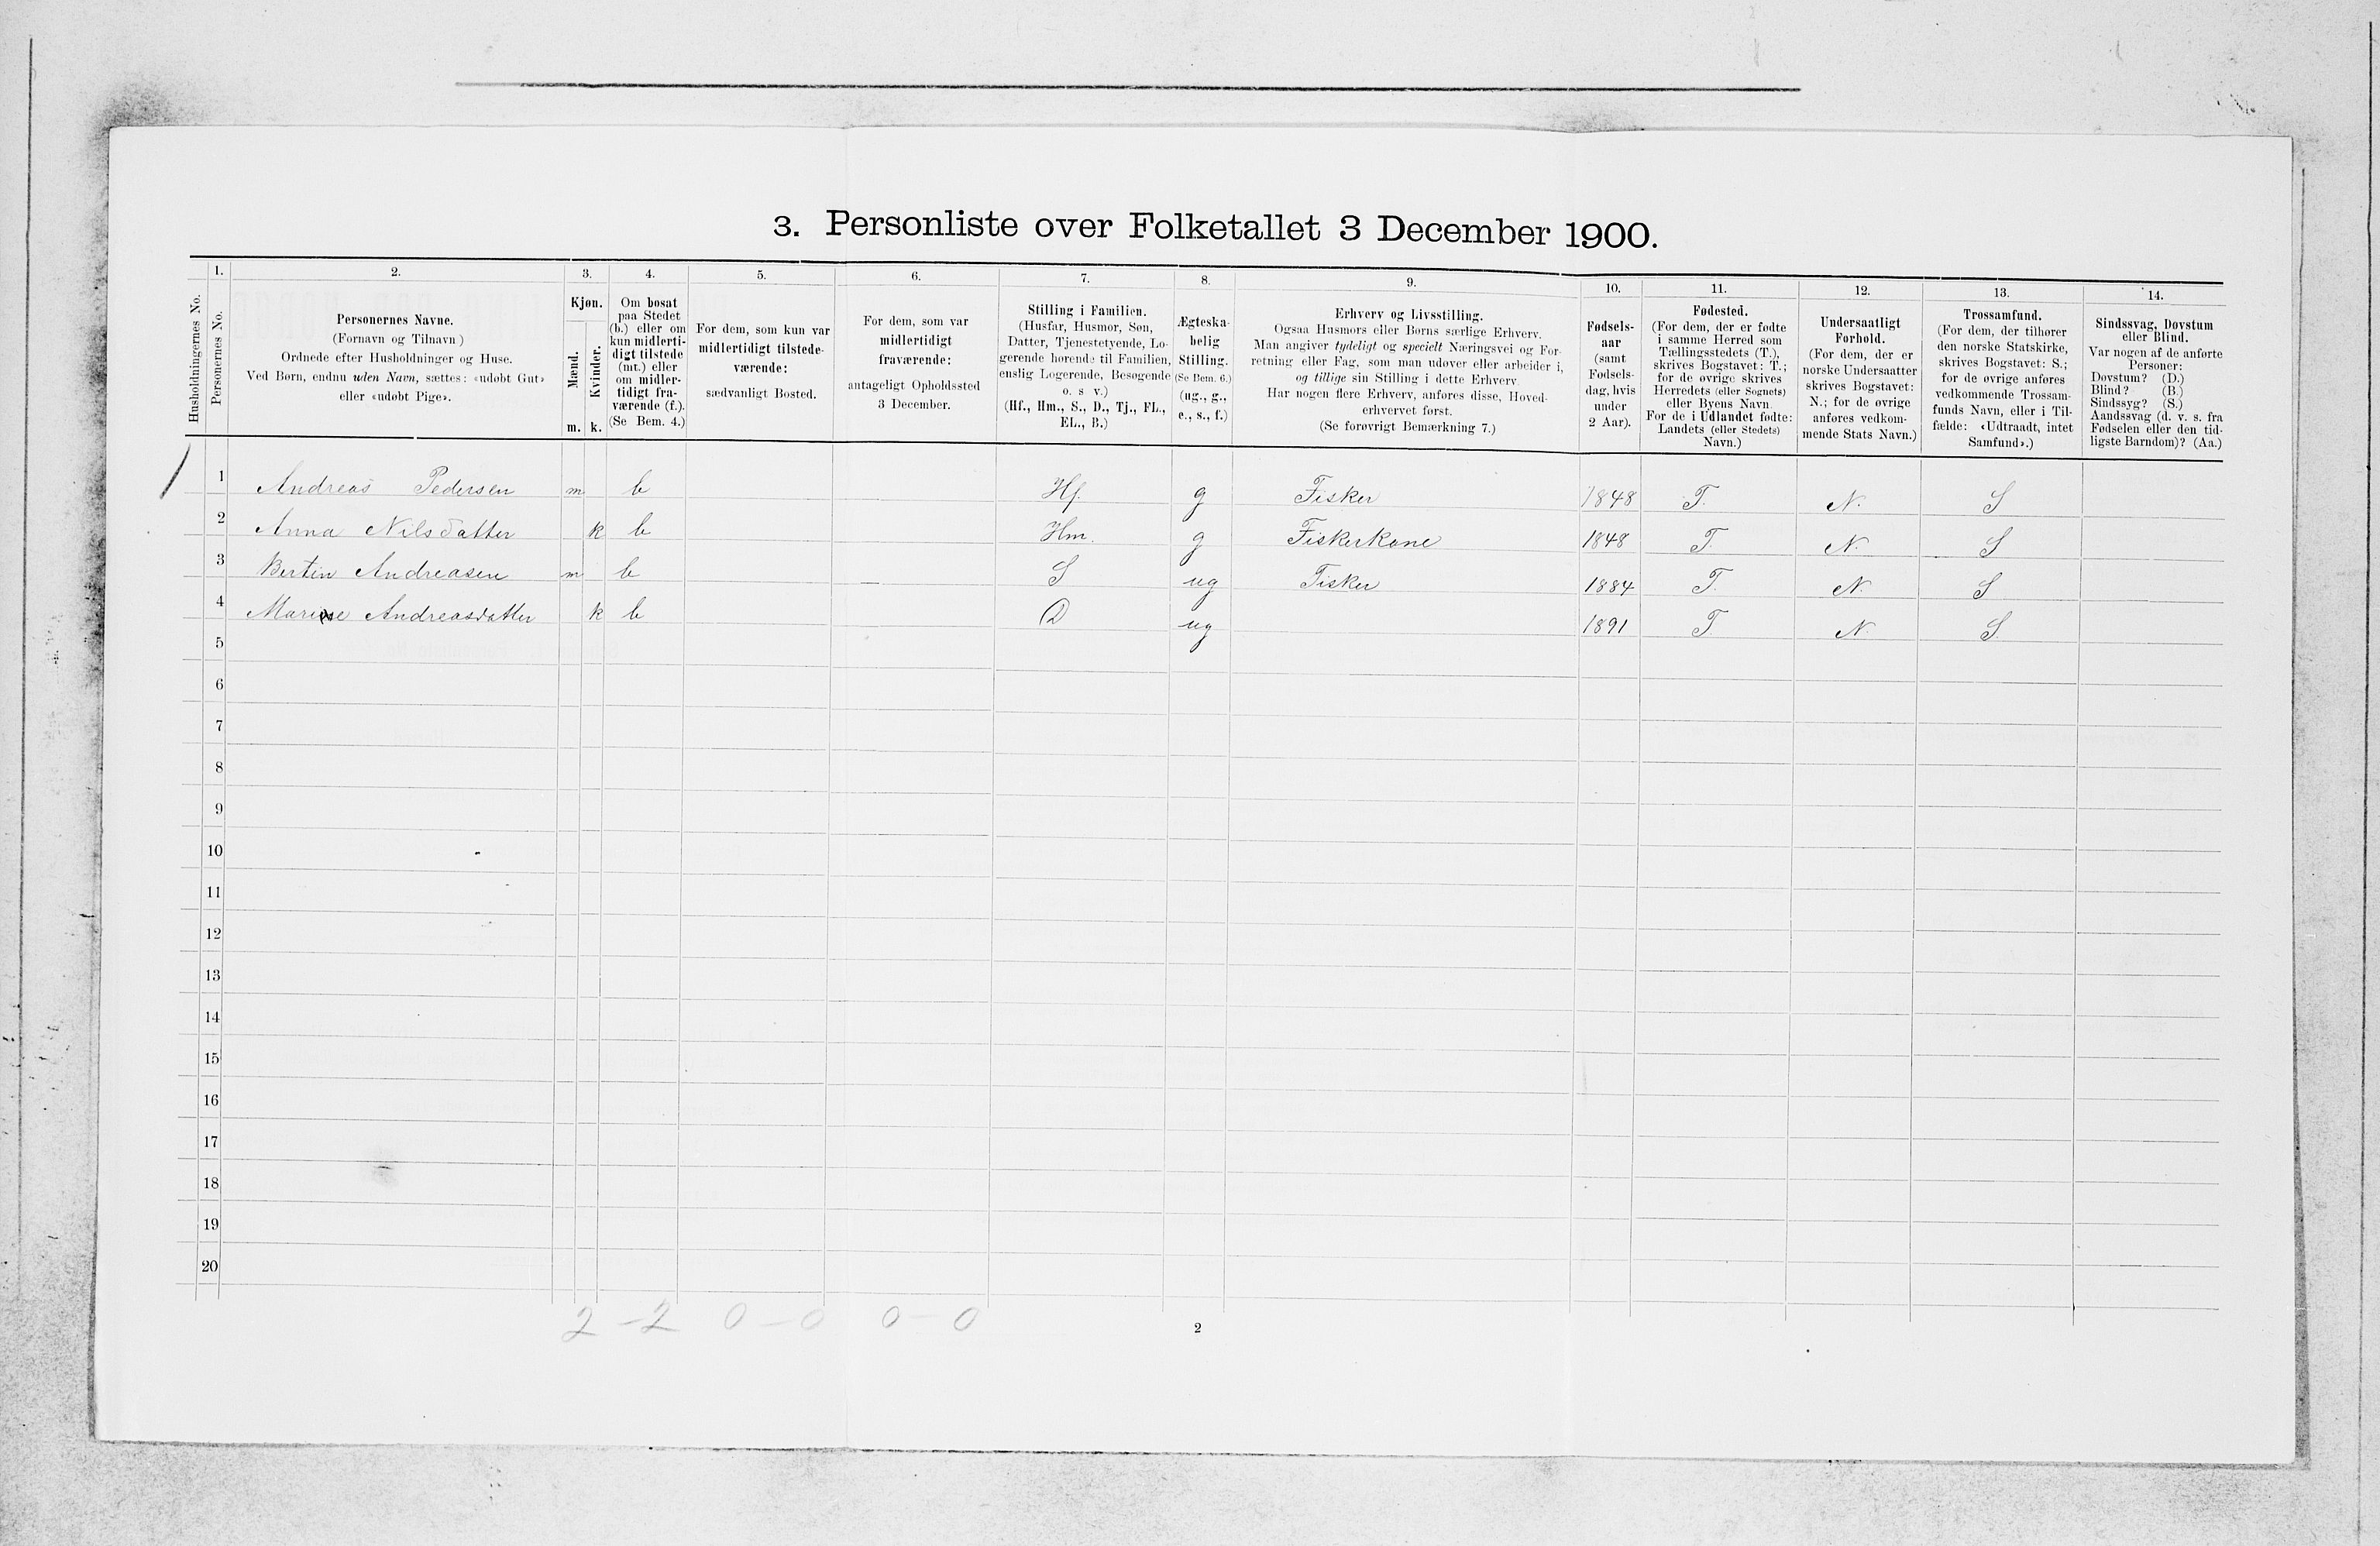 3. Personliste over Folketallet 3 December 1900.
1. 2. 3. 4. 5. 6. 7. 8. 9. 10. 11. 12. 13. 14.
Husholdningernes No.
Personernes No.
Personernes Navne.
(Fornavn og Tilnavn)
Ordnede efter Husholdninger og Huse.
Ved Børn, endnu uden Navn, sættes: «udøbt Gut»
eller «udøbt Pige».
Kjøn.
Mænd.
Kvinder.
m. k.
Om bosat
paa Stedet
(b.) eller om
kun midlerti-
digt tilstede
(mt.) eller
om midler-
tidigt fra-
værende (f.).
(Se Bem. 4.)
For dem, som kun var
midlertidigt tilstede-
værende:
sædvanligt Bosted.
For dem, som var
midlertidigt
fraværende:
antageligt Opholdssted
3 December.
Stilling i Familien.
(Husfar, Husmor, Søn,
Datter, Tjenestetyende, Lo-
gerende hørende til Familien,
enslig Logerende, Besøgende
o. s v.)
(Hf., Hm., S., D., Tj., FL.,
EL., B.)
Ægteska-
belig
Stilling.
(Se Bem. 6.)
(ug., g.,
e., s., f.)
Erhverv og Livsstilling.
Ogsaa Husmors eller Børns særlige Erhverv.
Man angiver tydeligt og specielt Næringsvei og For-
retning eller Fag, som man udøver eller arbeider i,
og tillige sin Stilling i dette Erhverv.
Har nogen flere Erhverv, anføres disse, Hoved-
erhvervet først.
(Se forøvrigt Bemærkning 7.)
Fødsels-
aar
(samt
Fødsels-
dag, hvis
under
2 Aar).
Fødested.
(For dem, der er fødte
i samme Herred som
Tællingsstedets (T.),
skrives Bogstavet: T.;
for de øvrige skrives
Herredets (eller Sognets)
eller Byens Navn
For de i Udlandet fødte:
Landets (eller Stedets)
Navn.)
Undersaatligt
Forhold.
(For dem, der er
norske Undersaatter
skrives Bogstavet:
N.; for de øvrige
anføres vedkom-
mende Stats Navn.)
Trossamfund.
(For dem, der tilhører
den norske Statskirke,
skrives Bogstavet: S.;
for de øvrige anføres
vedkommende Trossam-
funds Navn, eller i Til-
fælde: «Udtraadt, intet
Samfund».)
Sindssvag, Døvstum
eller Blind.
Var nogen af de anførte
Personer:
Døvstum? (D.)
Blind? (B.)
Sindssyg? (S.)
Aandssvag (d. v. s. fra
Fødselen eller den tid-
ligste Barndom)? (Aa.)
1 Andreas Pedersen m b Hf. g Fisker 1848 T. N. S
2 Anna Nilsdatter k b Hm. g Fiskerkone 1848 T. N. S
3 Bertin Andreasen m b S ug Fisker 1884 T. N. S
4 Andreasdatter k b D ug 1891 T. N. S
5
6
7
8
9
10
11
12
13
14
15
16
17
18
19
20
2 - 2 0 - 0 0 - 0
2